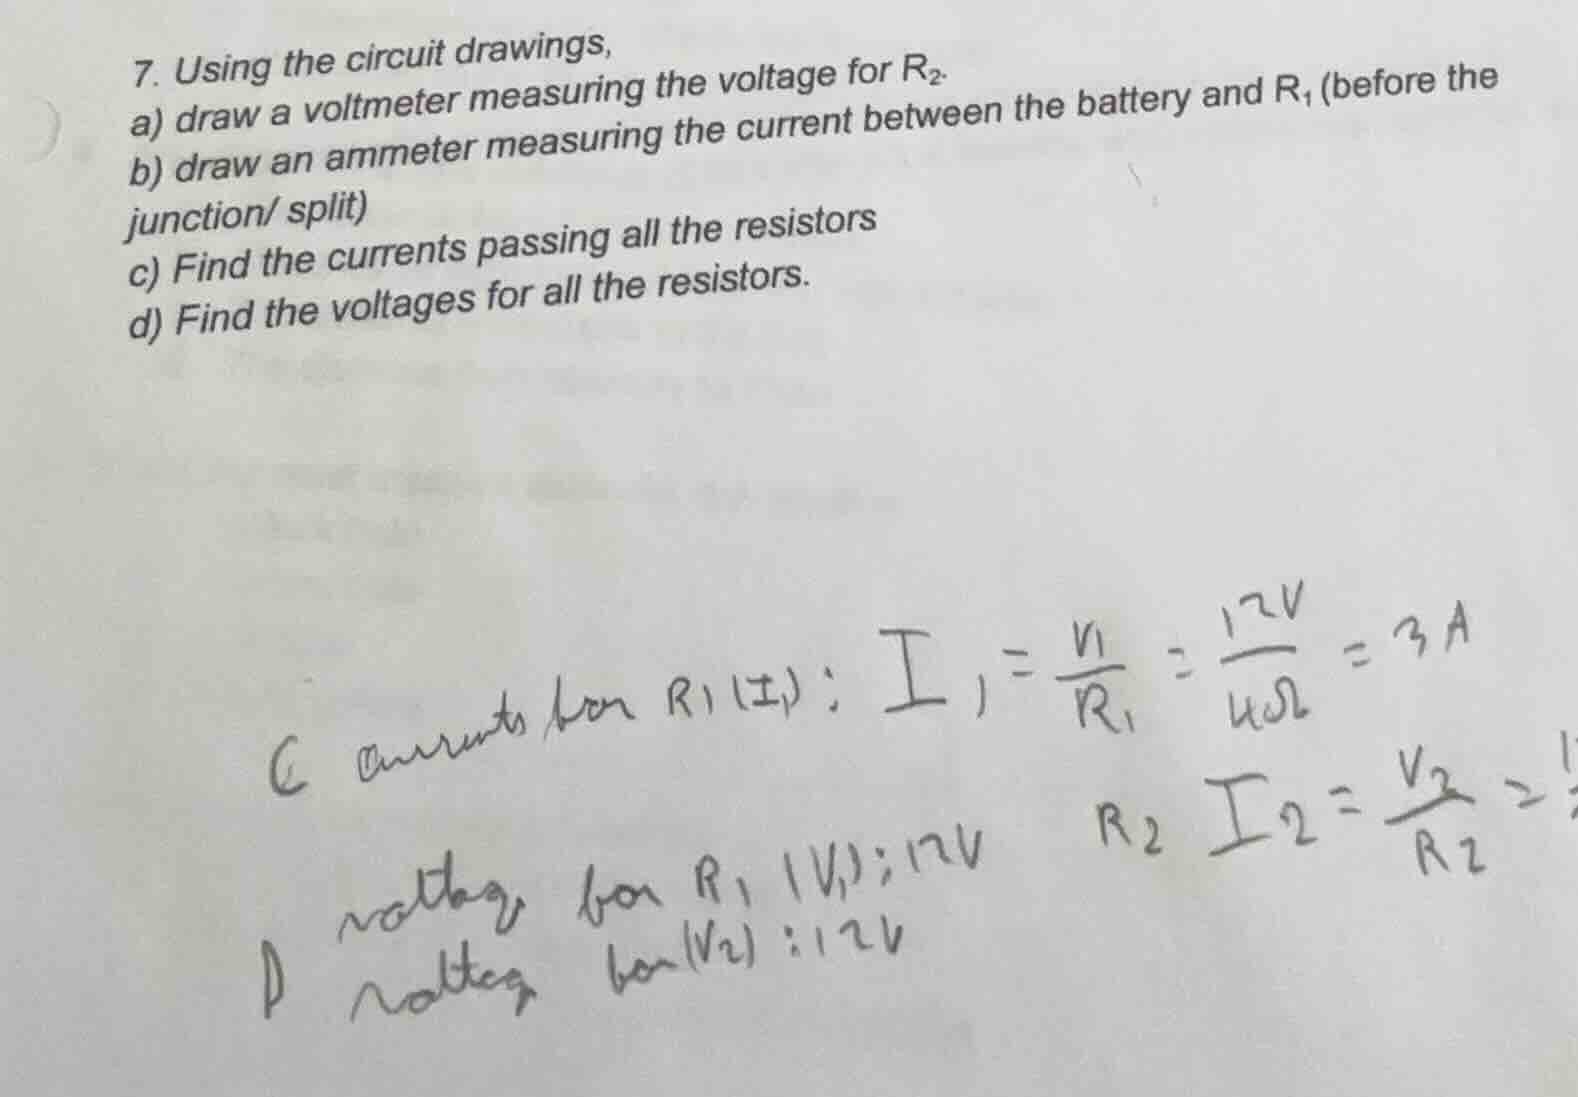 7. Using the circuit drawings,
a) draw a voltmeter measuring the voltage for R₂.
b) draw an ammeter measuring the current between the battery and R₁ (before the
junction/ split)
c) Find the currents passing all the resistors
d) Find the voltages for all the resistors.
C currents for R1 (I₁) : I₁ = V1/R₁ = 12V/4Ω = 3 A
R2 I2 = V2/R2 =
voltag for R₁ (V₁) : 12V
D voltag for (V2) : 12V